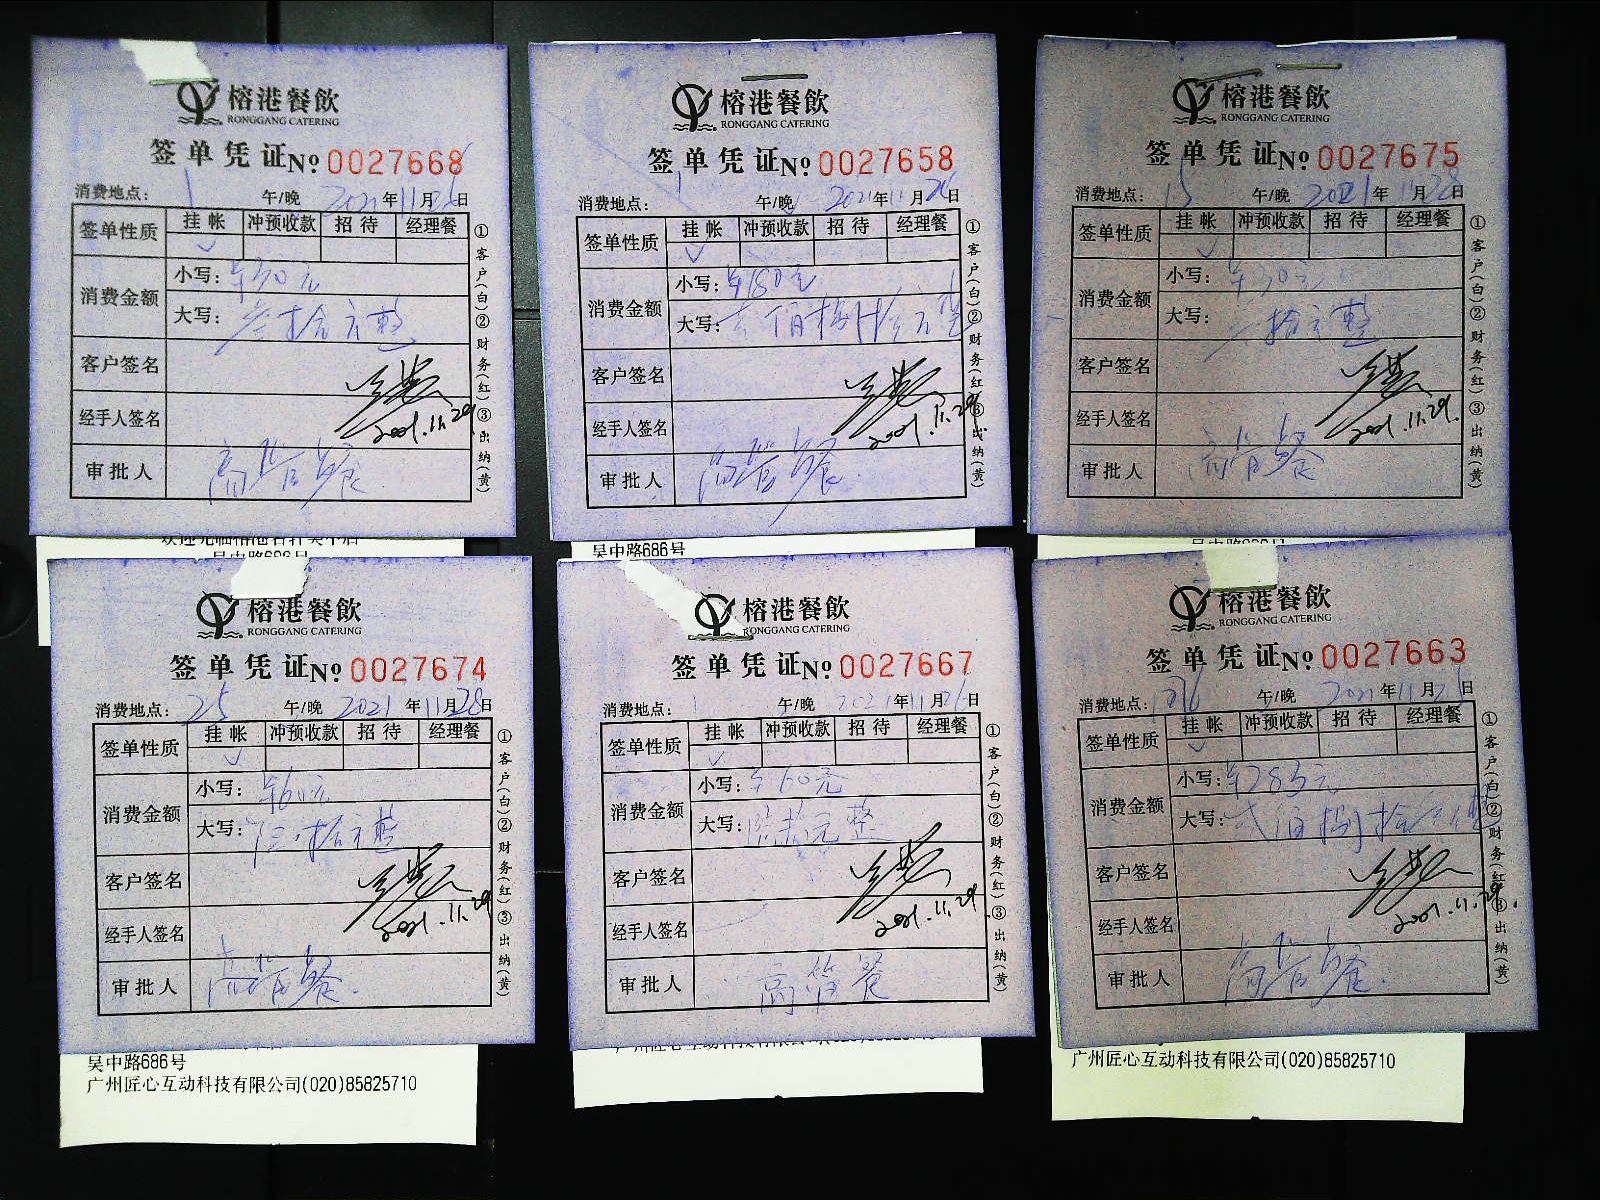 榕港餐飲
RONGGANG CATERING
签单凭证№ 0027668
消费地点： 1 午/晚 2021年11月26日
签单性质 挂帐 冲预收款 招待 经理餐
消费金额 小写：¥30元
大写：叁拾元整
客户签名
2021.11.29.
经手人签名
审批人 高管餐
①客户(白)②财务(红)③出纳(黄)
榕港餐飲
RONGGANG CATERING
签单凭证№ 0027658
消费地点： 1 午/晚 2021年11月26日
签单性质 挂帐 冲预收款 招待 经理餐
消费金额 小写：¥180元
大写：佰捌拾元整
客户签名
2021.11.29
经手人签名
审批人 高管餐
①客户(白)②财务(红)③出纳(黄)
吴中路686号
榕港餐飲
RONGGANG CATERING
签单凭证№ 0027675
消费地点： 15 午/晚 2021年11月28日
签单性质 挂帐 冲预收款 招待 经理餐
消费金额 小写：¥30元
大写：拾元整
客户签名
2021.11.29.
经手人签名
审批人 高管餐
①客户(白)②财务(红)③出纳(黄)
榕港餐飲
RONGGANG CATERING
签单凭证№ 0027674
消费地点： 25 午/晚 2021年11月28日
签单性质 挂帐 冲预收款 招待 经理餐
消费金额 小写：¥60元
大写：陆拾元整
客户签名
2021.11.29
经手人签名
审批人 高管餐.
①客户(白)②财务(红)③出纳(黄)
吴中路686号
广州匠心互动科技有限公司(020)85825710
榕港餐飲
RONGGANG CATERING
签单凭证№ 0027667
消费地点： 1 午/晚 2021年11月26日
签单性质 挂帐 冲预收款 招待 经理餐
消费金额 小写：¥60元
大写：陆拾元整
客户签名
2021.11.29.
经手人签名
审批人 高管餐
①客户(白)②财务(红)③出纳(黄)
广州匠心互动科技有限公司(020)85825710
榕港餐飲
RONGGANG CATERING
签单凭证№ 0027663
消费地点： 午/晚 2021年11月26日
签单性质 挂帐 冲预收款 招待 经理餐
消费金额 小写：¥285元
大写：贰佰捌拾伍元整
客户签名
2021.11.29.
经手人签名
审批人 高管餐.
①客户(白)②财务(红)③出纳(黄)
广州匠心互动科技有限公司(020)85825710